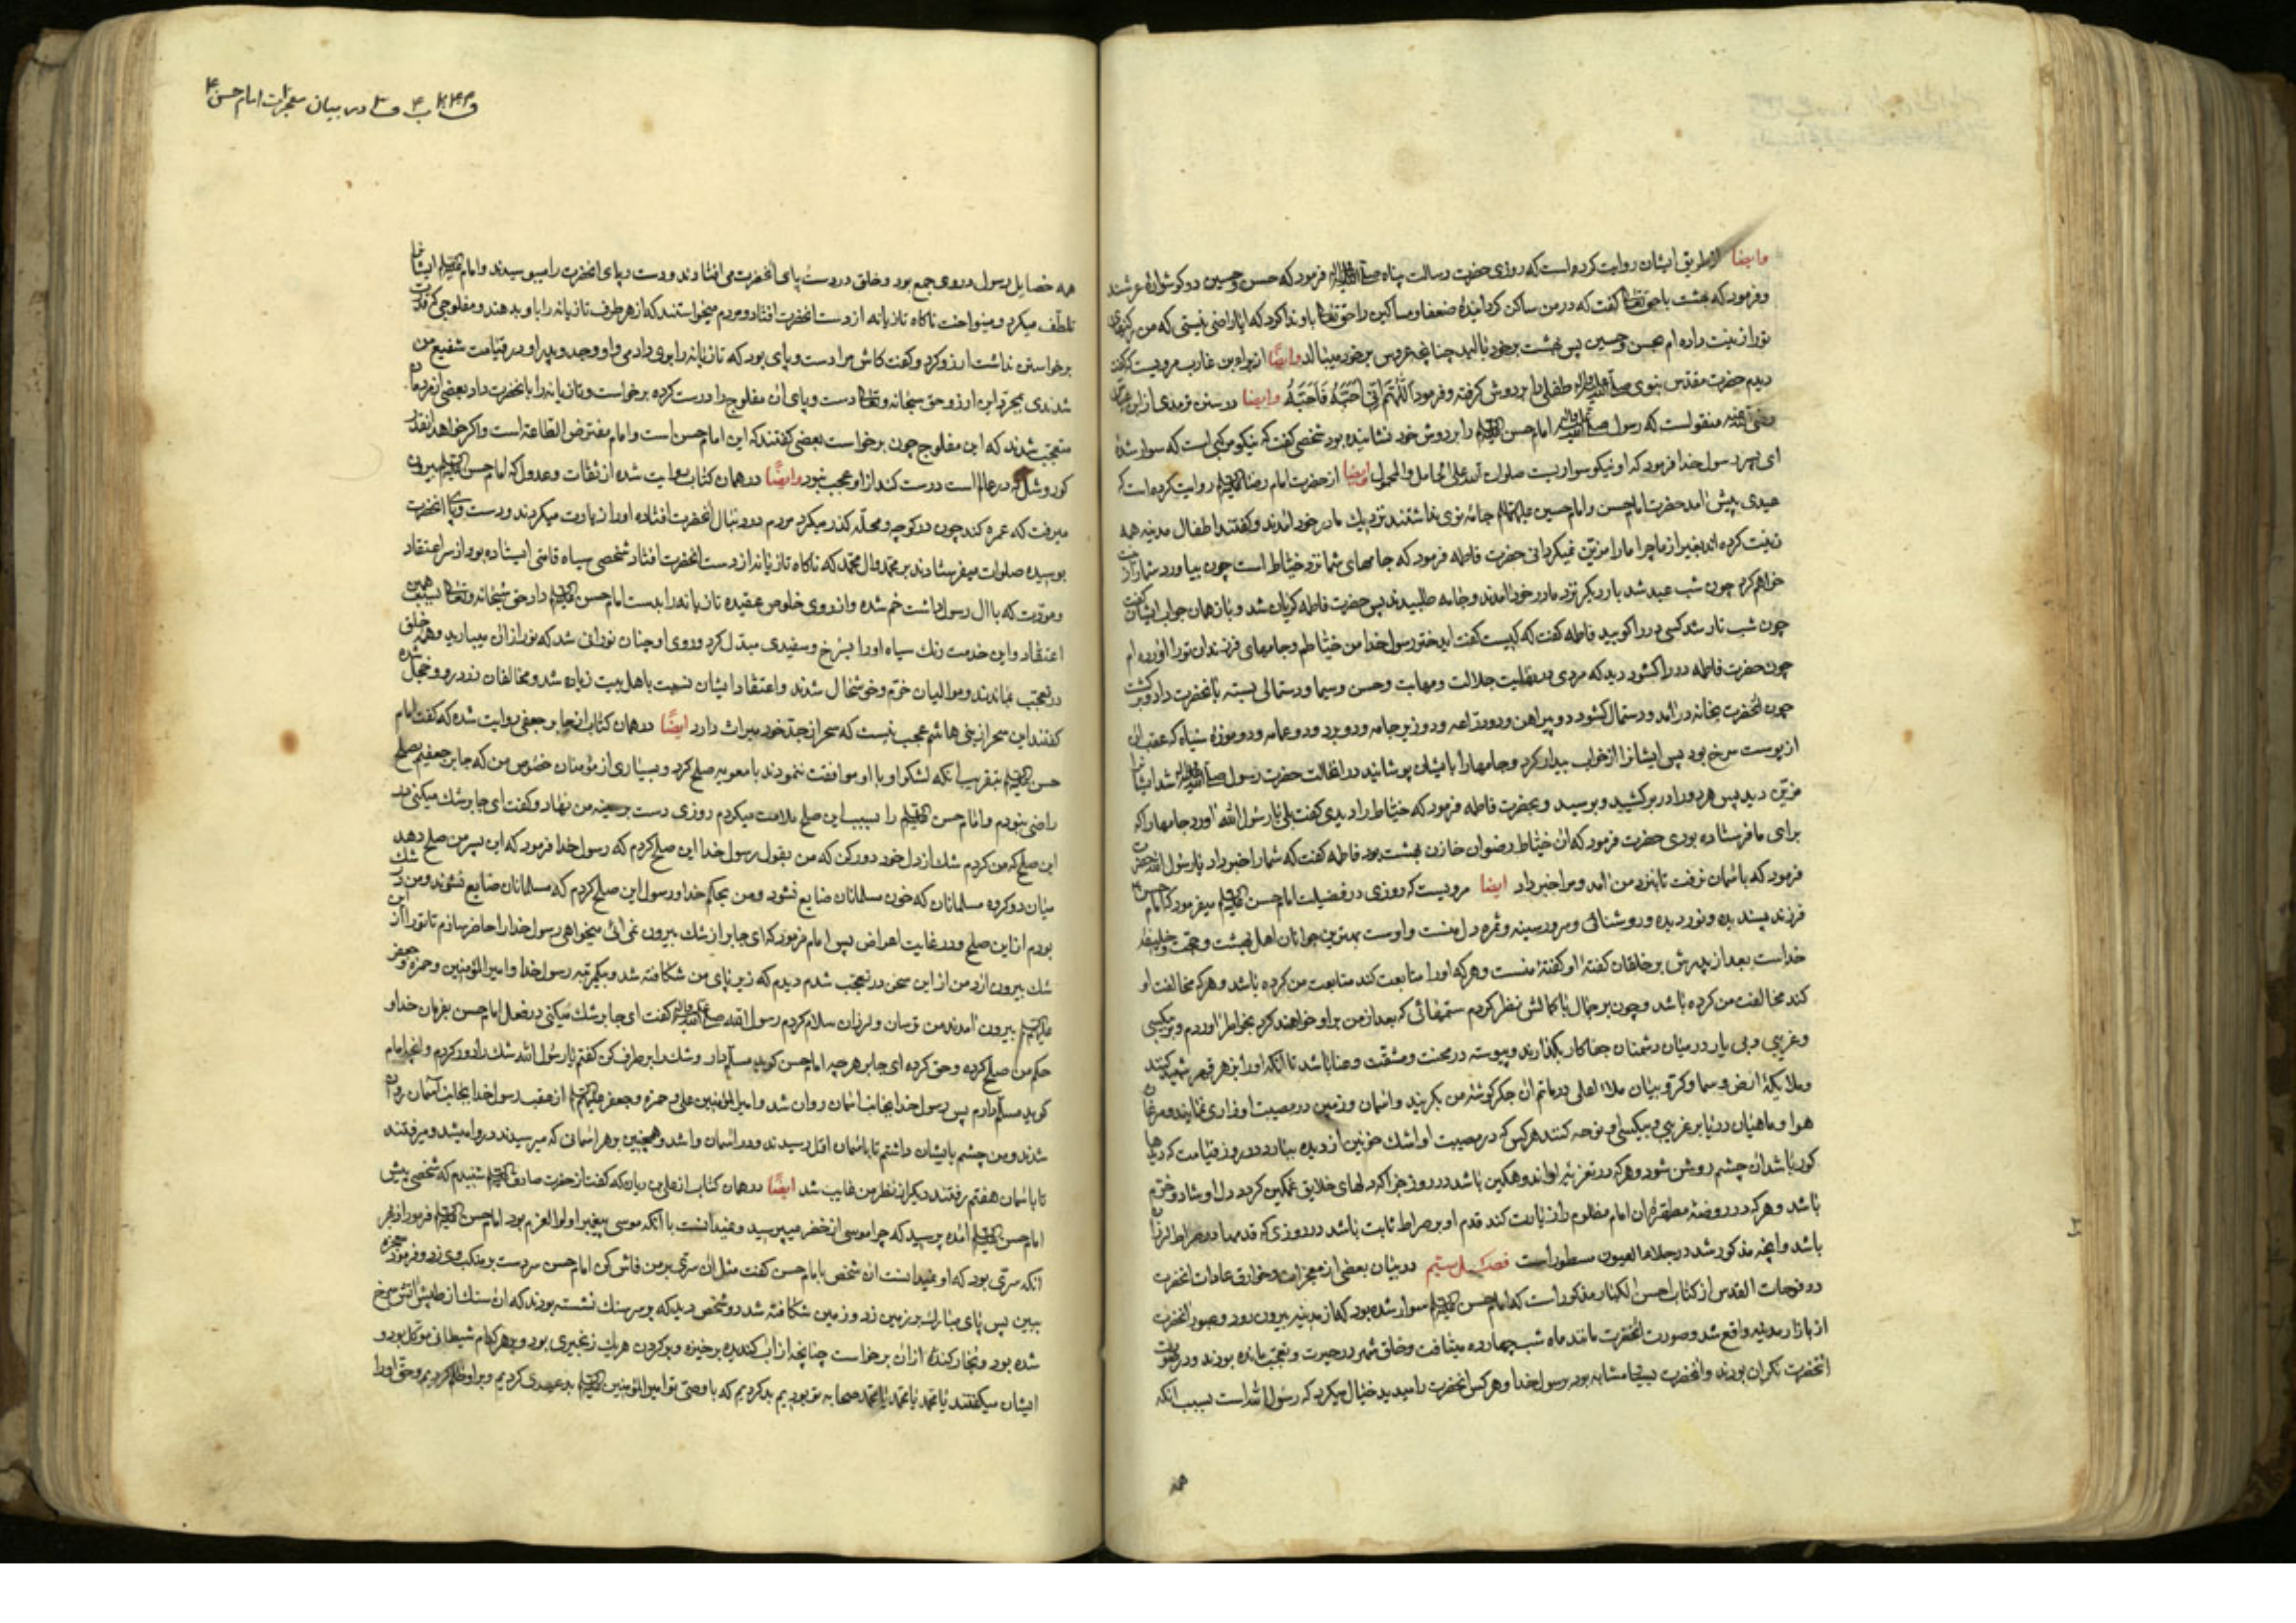 وایضا از طریق ایشان روایت کرده است که روزی حضرت رسالت پناه صلی الله علیه واله فرمود که حسن و حسین دو کوشواره عرشند
وفرمود که بهشت با حق تعالی کفت که در من ساکن کردانیده ضعفا و مساکین را حق تعالی باو ندا کرد که ایا راضی نیستی که من رکنهای
تو را زینت داده ام بحسن و حسین پس بهشت بر خود بالید چنانچه عروس بر خود میبالد وایضًا از براء بن عازب مرویست که کفت
دیدم حضرت مقدس نبوی صلی الله علیه واله طفلی را بر دوش کرفته و فرمود اللّهُمَّ اِنّی اُحِبُّهُ فَاَحِبَّهُ وایضا در سنن ترمذی از ابن عباس
رضی الله عنه منقولست که رسول صلی الله علیه واله امام حسن علیه السلام را بر دوش خود نشانیده بود شخصی کفت که نیکو مرکبی است که سوار شدهٔ
ای پسر رسول خدا فرمود که او نیکو سواریست صلوات الله علی الحامل والمحمول ایضا از حضرت امام رضا علیه السلام روایت کرده است که
عیدی پیش امد حضرت امام حسن و امام حسین علیهما السلام جامه نوی نداشتند نزدیک مادر خود امدند و کفتند اطفال مدینه همه
زینت کرده اند بغیر از ما چرا ما را مزین نمیکردانی حضرت فاطمه فرمود که جامهای شما نزد خیاط است چون بیاورد شما را زینت
خواهم کرد چون شب عید شد بار دیکر نزد مادر خود امدند و جامه طلبیدند پس حضرت فاطمه کریان شد و باز همان جواب ایشان کفت
چون شب تار شد کسی در را کوبید فاطمه کفت که کیست کفت ای دختر رسول خدا من خیاطم و جامهای فرزندان تو را اورده ام
چون حضرت فاطمه در را کشود دید که مردی در نهایت جلالت و مهابت و حسن و سیما و دستمالی بسته بانحضرت داد و برکشت
چون انحضرت بخانه درامد و دستمال کشود دو پیراهن و دو دراعه و دو زیر جامه و دو برد و دو عمامه و دو موزهٔ سیاه که عقب ان
از پوست سرخ بود پس ایشانرا از خواب بیدار کرد و جامها را بایشان پوشانید در انحالت حضرت رسول صلی الله علیه واله شد ایشانرا
مزین دید پس هر دو را در بر کشید و بوسید و بحضرت فاطمه فرمود که خیاط را دیدی کفت بلی یا رسول الله اورد جامها را که
برای ما فرستاده بودی حضرت فرمود که ان خیاط رضوان خازن بهشت بود فاطمه کفت که شما را خبر داد یا رسول الله حضرت
فرمود که باسمان نرفت تا بنزد من امد و مرا خبر داد ایضا مرویست که روزی در فضیلت امام حسن علیه السلام میفرمود که امام حسن
فرزند پسندیده و نور دیده و روشنائی و سرور سینه و ثمره دل منست و اوست بهترین جوانان اهل بهشت و حجت و خلیفه
خداست بعد از پدرش بر خلقان کفته او کفتهٔ منست و هر که او را متابعت کند متابعت من کرده باشد و هر که مخالفت او
کند مخالفت من کرده باشد و چون بر جمال باکمالش نظر کردم ستمهائی که بعد از من بر او خواهند کرد بخواطر اوردم و بر بیکسی
و غریبی و بی یار در میان دشمنان جفاکار بکذارند و پیوسته در محنت و مشقت و عنا باشد تا انکه او را بزهر قهر شهید کنند
و ملایکهٔ ارض و سما و کروبیان ملاء اعلی در ماتم ان جکر کوشهٔ من بکریند و اسمان و زمین در مصیبت او زاری نمایند و مرغان
هوا و ماهیان دریا بر غریبی و بیکسی او نوحه کنند هر کس که در مصیبت او اشک خونین از دیده ببارد در روز قیامت که دیدها
کور باشد ان چشم روشن شود و هر که در تعزیه او اندوهکین باشد در روز جزا که دلهای خلایق غمکین کردد دل او شاد و خرم
باشد و هر که در روضهٔ مطهره ان امام مظلوم را زیارت کند قدم او بر صراط ثابت باشد در روزی که قدمها در صراط لرزان
باشد و انچه مذکور شد در جلاء العیون مسطور است فصل سیم در بیان بعضی از معجزات و خوارق عادات انحضرت
در فوحات القدس از کتاب احسن الکبار مذکور است که امام حسن علیه السلام سوار شده بود که از مدینه بیرون رود و عبور انحضرت
از بازار مدینه واقع شد و صورت انحضرت مانند ماه شب چهارده میتافت و خلق شهر در حیرت و تعجب مانده بودند و در صورت
انحضرت نکران بودند و انحضرت بسیار مشابه بود برسول خدا و هر کس انحضرت را میدید خیال میکرد که رسول الله است بسبب انکه
همه
در بیان معجزات امام حسن ۴
همه خصایل رسول در وی جمع بود و خلق در دست و پای انحضرت می افتادند و دست و پای انحضرت را میبوسیدند و امام علیه السلام ایشانرا
تلطّف میکرد و مینواخت ناکاه تازیانه از دست انحضرت افتاد و مردم میخواستند که از هر طرف تازیانه را باو بدهند و مفلوجی که قدرت
برخواستن نداشت ارزو کرد و کفت کاش مرا دست و پای بود که تازیانه را بوی دادمی و او و جد و پدر او در قیامت شفیع من
شدندی بمجرد این ارزو حق سبحانه و تعالی دست و پای ان مفلوج را درست کرده برخواست و تازیانه را بانحضرت داد بعضی از مردمان
متعجب شدند که این مفلوج چون برخواست بعضی کفتند که این امام حسن است و امام مفترض الطاعه است و اکر خواهد انقدر
کور و شل که در عالم است درست کند از او عجب نبود وایضًا در همان کتاب روایت شده از ثقات و عدول که امام حسن علیه السلام بیرون
میرفت که عمره کند چون در کوچه و محلّه کذر میکرد مردم در دنبال انحضرت افتاده او را زیارت میکردند و دست و پای انحضرت
بوسیده صلوات میفرستادند بر محمّد و ال محمّد که ناکاه تازیانه از دست انحضرت افتاد شخصی سیاه قامتی ایستاده بود از سر اعتقاد
و مودّت که باال رسول داشت خم شده و از روی خلوص عقیده تازیانه را بدست امام حسن علیه السلام داد حق سبحانه و تعالی بسبب همین
اعتقاد و این خدمت رنک سیاه او را بسرخ و سفیدی مبدل کرد و روی او چنان نورانی شد که نور از ان میبارید و همه خلق
در تعجب بماندند و موالیان خرّم و خوشحال شدند و اعتقاد ایشان نسبت باهل بیت زیاده شد و مخالفان زرد رو و خجل شده
کفتند این سحر از بنی هاشم عجب نیست که سحر از جدّ خود میراث دارد ایضًا در همان کتاب از جابر جعفی روایت شده که کفت امام
حسن علیه السلام بتقریب انکه لشکر او با او موافقت ننمودند با معویه صلح کرد و بسیاری از مؤمنان خصوص من که جابر جعفیم بصلح
راضی نبودم و امام حسن علیه السلام را بسبب این صلح ملامت میکردم روزی دست بر سینه من نهاد و کفت ای جابر شک میکنی در
این صلح که من کردم شک از دل خود دور کن که من بقول رسول خدا این صلح کردم که رسول خدا فرمود که این پسر من صلح دهد
میان دو کروه مسلمانان که خون مسلمانان ضایع نشود و من بحکم خدا و رسول این صلح کردم که مسلمانان ضایع نشوند و من در شک
بودم از این صلح و در غایت اعراض پس امام فرمود که ای جابر از شک بیرون نمی ائی میخواهی رسول خدا را حاضر سازم تا تو را از این
شک بیرون ارد من از این سخن در تعجب شدم دیدم که زیر پای من شکافته شد و بیکمرتبه رسول خدا و امیر المؤمنین و حمزه و جعفر
علیهم السلام بیرون امدند من ترسان و لرزان سلام کردم رسول الله صلی الله علیه واله کفت ای جابر شک میکنی در فعل امام حسن بفرمان خدا و
حکم من صلح کرده و حق کرده ای جابر هر چه امام حسن کوید مسلّم دار و شک را بر طرف کن کفتم یا رسول الله شک را دور کردم و انچه امام
کوید مسلّم دارم پس رسول خدا بجانب اسمان روان شد و امیر المؤمنین علی و حمزه و جعفر علیهم السلام از عقب رسول خدا بجانب آسمان روان
شدند و من چشم بایشان داشتم تا باسمان اوّل رسیدند و در اسمان وا شد و همچنین بهر اسمان که میرسیدند در وا میشد و میرفتند
تا باسمان هفتم رفتند دیکر از نظر من غایب شد ایضًا در همان کتاب از علی بن ریان که کفت از حضرت صادق علیه السلام شنیدم که شخصی پیش
امام حسن علیه السلام آمده پرسید که چرا موسی از خضر میپرسید و نمیدانست با آنکه موسی پیغمبر اولوا العزم بود امام حسن علیه السلام فرمود از بهر
انکه سرّی بود که او نمیدانست ان شخص بامام حسن کفت مثل ان سرّی بر من فاش کن امام حسن سر دست بر منکب وی زد و فرمود معجزه
ببین پس پای مبارک بر زمین زد و زمین شکافته شد دو شخص دید که بر سر سنک نشسته بودند که ان سنک از طپش آتش سرخ
شده بود و بخار کندهٔ از ان برخواست چنانچه از اب کندیده برخیزد و بر کردن هر یک زنجیری بود و بهر کدام شیطانی موکل بود و
ایشان میکفتند یا محمّد یا محمّد یا محمّد صحابه تو بودیم بد کردیم که با وصیّ تو امیر المؤمنین علیه السلام بد عهدی کردیم و بر او ظلم کردیم و حق او را